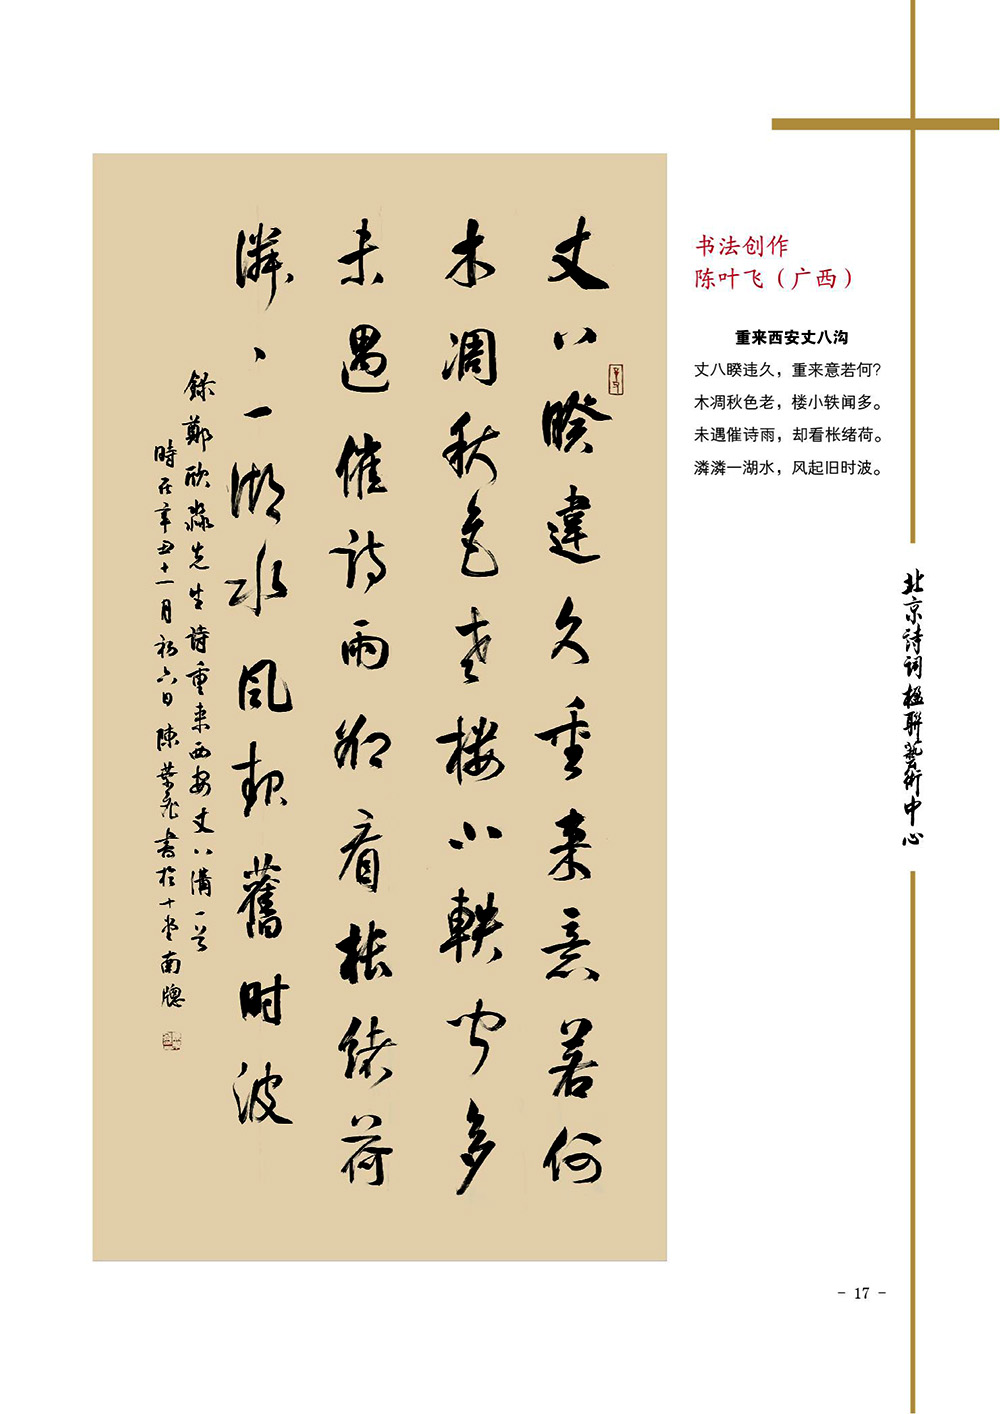 丈八暌違久重来意若何
木凋秋色老楼小軼闻多
未遇催诗雨却看枨绪荷
潾、一湖水風起舊时波
録鄭欣淼先生诗重来西安丈八溝一首
時在辛丑十一月初六日陳葉飛書於十堂南牕
书法创作
陈叶飞（广西）
重来西安丈八沟
丈八暌违久，重来意若何？
木凋秋色老，楼小轶闻多。
未遇催诗雨，却看枨绪荷。
潾潾一湖水，风起旧时波。
北京诗词楹聯藝術中心
- 17 -